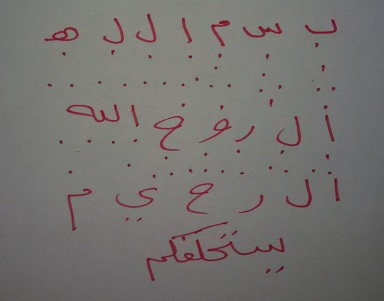 ب س م ا ل ل ه
أ ل ر و ح الله
ا ل ر ح ي م
يستخلفكم